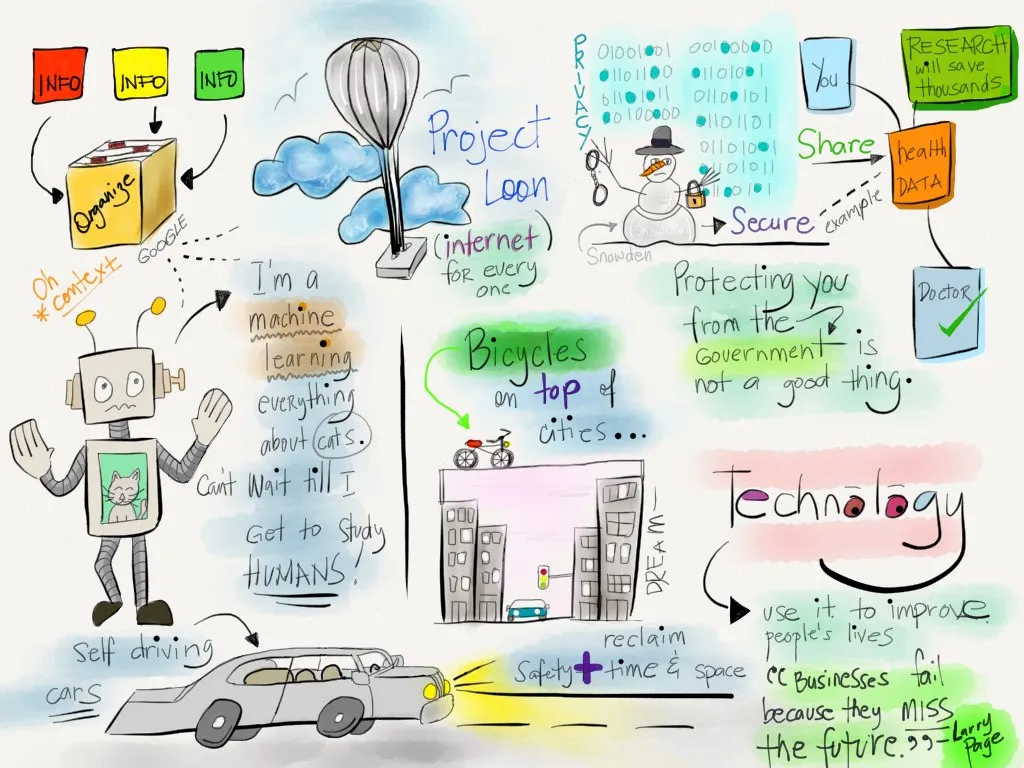 INFO
INFO
INFO
Organize
GOOGLE
Oh
* context
Project
Loon
(internet)
FOR every
one
PRIVACY
01001001
00100000
01101100
01101111
01110110
01100101
Snowden
Secure
Share
example
You
RESEARCH
will save
thousands
health
DATA
DOCTOR
Protecting you
from the
GOVERNMENT is
not a good thing.
I'm a
machine
learning
everything
about cats.
Can't wait till I
GET to study
HUMANS!
Bicycles
on top of
cities...
DREAM
Technology
use it to improve
people's lives
"BUSINESSES fail
because they MISS
the future." - Larry
Page
self driving
cars
reclaim
Safety + time & space